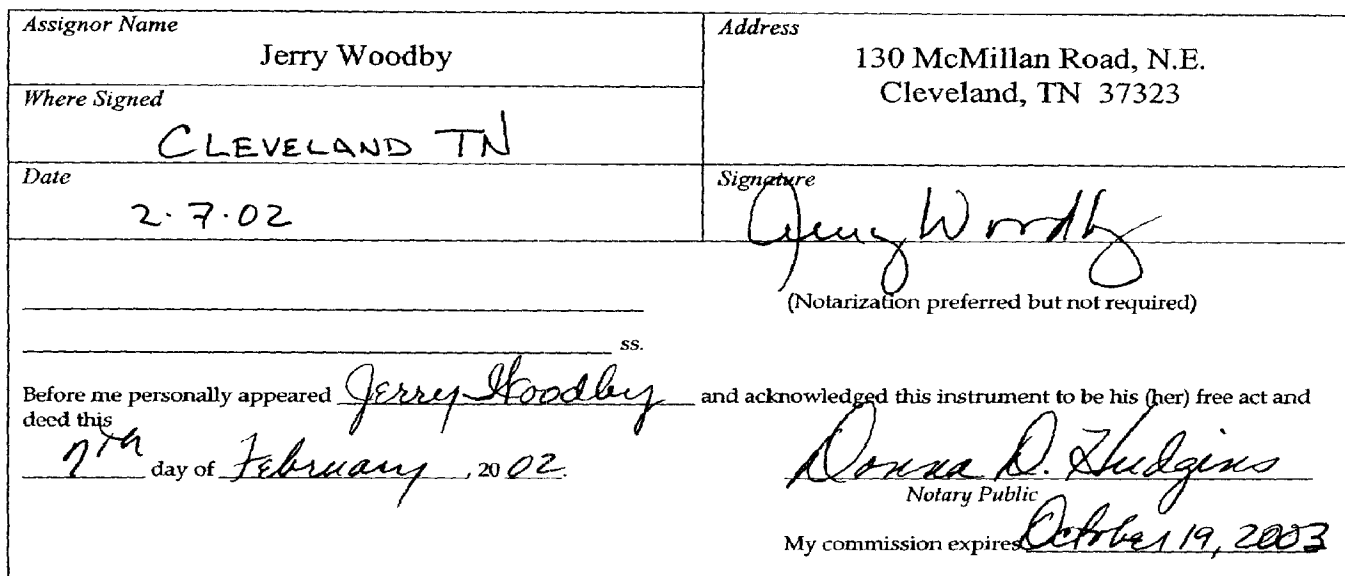 Assignor Name
Jerry Woodby
Address
130 McMillan Road, N.E.
Cleveland, TN 37323
Where Signed
CLEVELAND TN
Date
2.7.02
Signature
Jerry Woodby
(Notarization preferred but not required)
ss.
Before me personally appeared Jerry Woodby and acknowledged this instrument to be his (her) free act and
deed this
7th day of February, 2002.
Donna D. Hudgins
Notary Public
My commission expires October 19, 2003